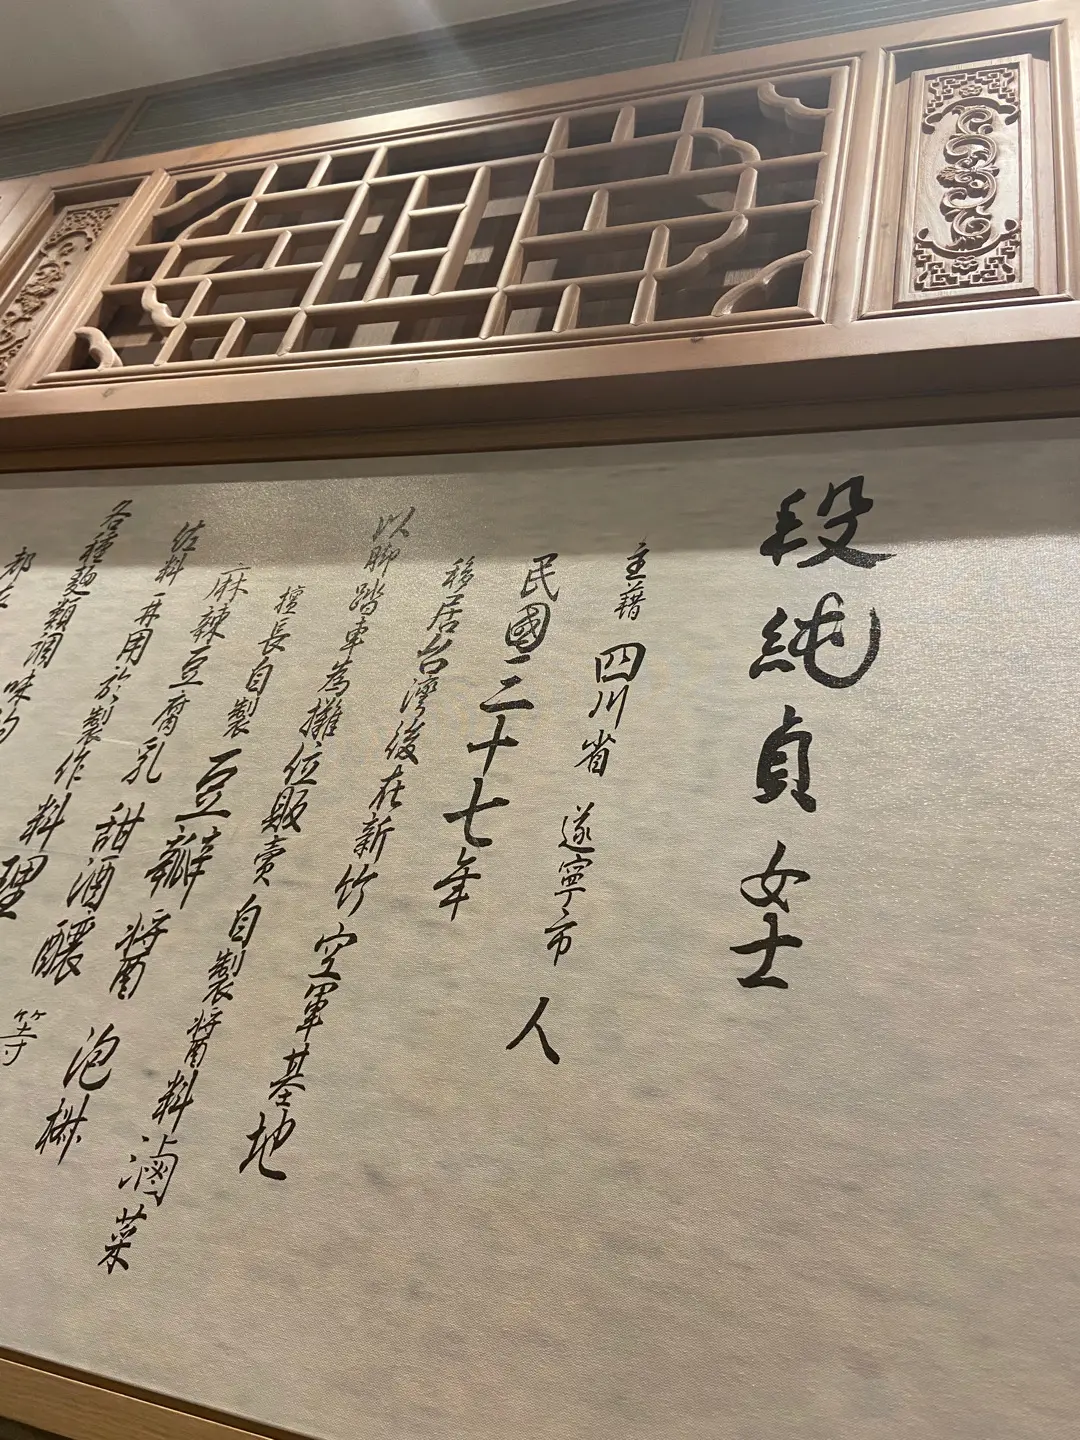 段純貞女士
主藉 四川省 遂寧市 人
民國三十七年
移居台灣後在新竹空軍基地
以腳踏車為攤位販賣自製醬料滷菜
擅長自製豆瓣醬泡椒
麻辣豆腐乳甜酒釀等
佐料再用於製作料理
各種麵類調味
都在